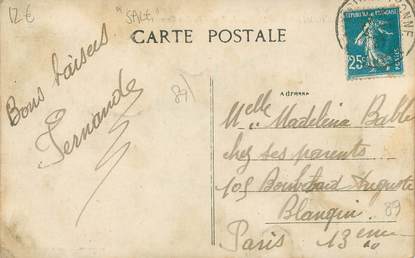 12€
"SALG"
CARTE POSTALE
RÉPUBLIQUE FRANÇAISE
25c
POSTES
ADRESSE
Bons baisers
Fernande
89
Melle Madeleine
chez ses parents
105 Boulevard Auguste
Blanqui
89
Paris 13eme